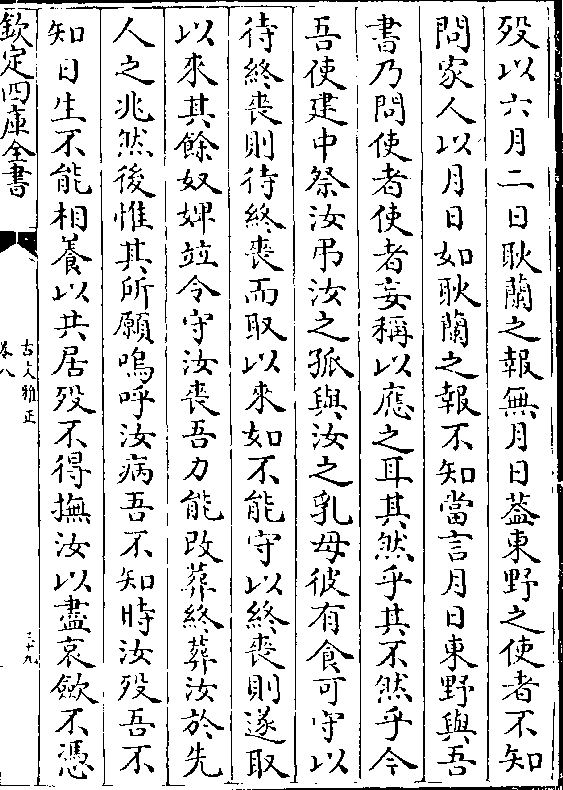 歿以六月二日耿蘭之報無月日葢東野之使者不知
問家人以月日如耿蘭之報不知當言月日東野與吾
書乃問使者使者妄稱以應之耳其然乎其不然乎今
吾使建中祭汝弔汝之孤與汝之乳母彼有食可守以
待終喪則待終喪而取以來如不能守以終喪則遂取
以來其餘奴婢竝令守汝喪吾力能改葬終葬汝於先
人之兆然後惟其所願嗚呼汝病吾不知時汝歿吾不
知日生不能相養以共居歿不得撫汝以盡哀歛不憑
欽定四庫全書
古文雅正
卷八
三十九